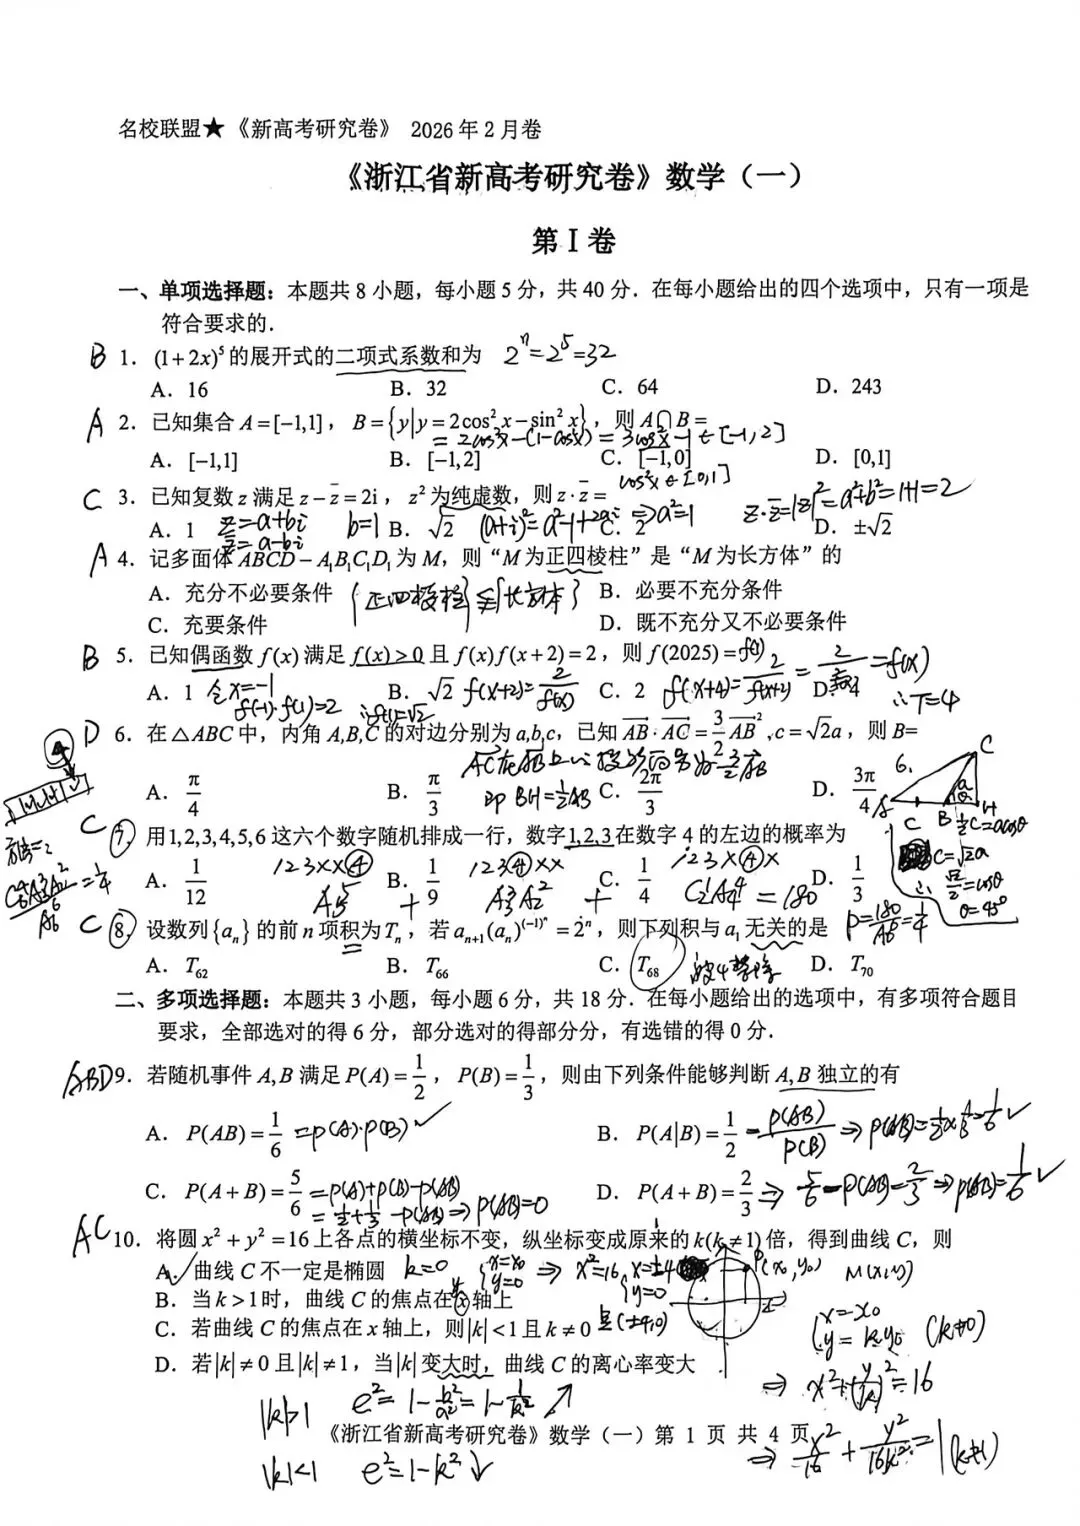 名校联盟★《新高考研究卷》 2026年2月卷
《浙江省新高考研究卷》数学（一）
第Ⅰ卷
一、单项选择题：本题共8小题，每小题5分，共40分．在每小题给出的四个选项中，只有一项是
符合要求的．
B 1．(1+2x)⁵的展开式的二项式系数和为 2ⁿ=2⁵=32
A．16 B．32 C．64 D．243
A 2．已知集合A=[-1,1]，B={y|y=2cos²x-sin²x}，则A∩B=
=2cos²x-(1-cos²x)=3cos²x-1∈[-1,2]
A．[-1,1] B．[-1,2] C．[-1,0] D．[0,1]
cos²x∈[0,1]
C 3．已知复数z满足z-z̄=2i，z²为纯虚数，则z·z̄=
A．1 B．√2 C．2 D．±√2
z=a+bi b=1 (a+i)²=a²-1+2ai⇒a²=1 z·z̄=|z|²=a²+b²=1+1=2
z̄=a-bi
A 4．记多面体ABCD-A₁B₁C₁D₁为M，则“M为正四棱柱”是“M为长方体”的
A．充分不必要条件 {正四棱柱}⫋{长方体} B．必要不充分条件
C．充要条件 D．既不充分又不必要条件
B 5．已知偶函数f(x)满足f(x)>0且f(x)f(x+2)=2，则f(2025)=f(1)
A．1 B．√2 C．2 D．4
令x=-1 f(x+2)=2/f(x) f(x+4)=2/f(x+2)= =f(x)
f(-1)·f(1)=2 ∴f(1)=√2 ∴T=4
D 6．在△ABC中，内角A,B,C的对边分别为a,b,c，已知AB·AC=3/2 AB²，c=√2a，则B=
A．π/4 B．π/3 C．2π/3 D．3π/4
即BH=½AB
6. C
A C B H
½c=acosθ
c=√2a
∴√2/2=cosθ
θ=45°
C 7．用1,2,3,4,5,6这六个数字随机排成一行，数字1,2,3在数字4的左边的概率为
A．1/12 B．1/9 C．1/4 D．1/3
123××④ 123④×× 123×④×
A₅⁵ + A₃³A₂² + C₂¹A₄⁴ =180 P=180/A₆⁶=1/4
方法二
=1/4
C 8．设数列{aₙ}的前n项积为Tₙ，若aₙ₊₁(aₙ)^(-1)ⁿ=2ⁿ，则下列积与a₁无关的是
A．T₆₂ B．T₆₆ C．T₆₈ 被4整除 D．T₇₀
二、多项选择题：本题共3小题，每小题6分，共18分．在每小题给出的选项中，有多项符合题目
要求，全部选对的得6分，部分选对的得部分分，有选错的得0分．
ABD 9．若随机事件A,B满足P(A)=1/2，P(B)=1/3，则由下列条件能够判断A,B独立的有
A．P(AB)=1/6 =P(A)·P(B) ✓ B．P(A|B)=1/2 =P(AB)/P(B) ⇒P(AB)=½×⅓=1/6 ✓
C．P(A+B)=5/6 =P(A)+P(B)-P(AB) D．P(A+B)=2/3 ⇒5/6-P(AB)=2/3⇒P(AB)=1/6 ✓
=½+⅓-P(AB)⇒P(AB)=0
AC 10．将圆x²+y²=16上各点的横坐标不变，纵坐标变成原来的k(k≠1)倍，得到曲线C，则
A．曲线C不一定是椭圆 k=0 {x=x₀ y=0 ⇒x²=16, x=±4 y=0 P(x₀,y₀) M(x,y)
B．当k>1时，曲线C的焦点在x轴上 y
C．若曲线C的焦点在x轴上，则|k|<1且k≠0 是(±4,0) {x=x₀ y=ky₀ (k≠0)
D．若|k|≠0且|k|≠1，当|k|变大时，曲线C的离心率变大 ⇒x²+(y/k)²=16
|k|>1 e²=1-b²/a²=1-1/k² ↗
《浙江省新高考研究卷》数学（一）第 1 页 共 4 页
⇒x²/16+y²/16k²=1 (k≠1)
|k|<1 e²=1-k²↓